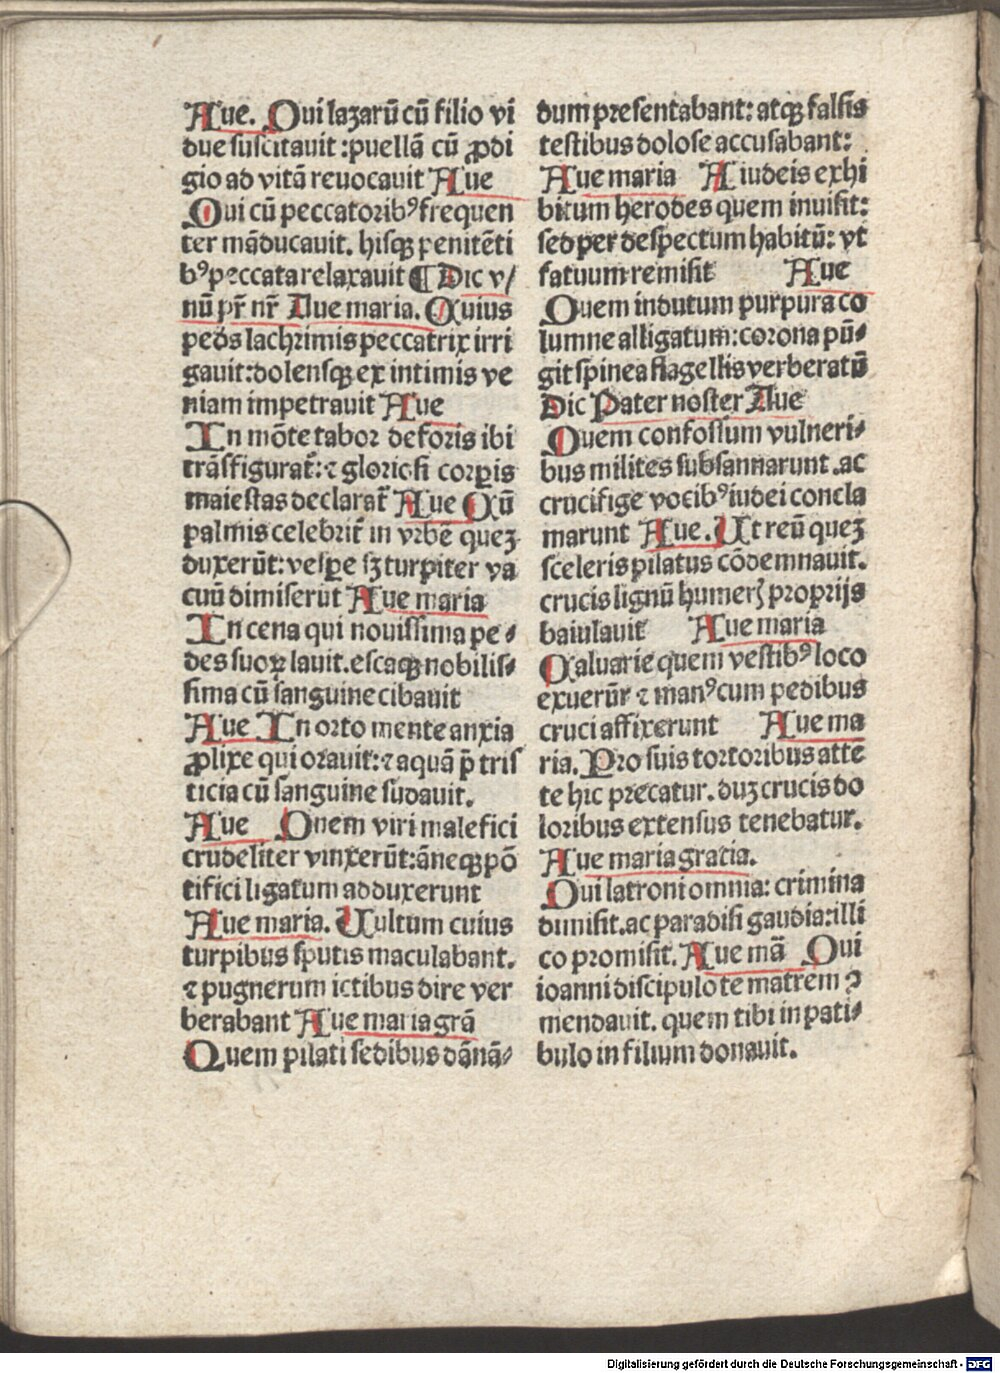 Aue. Qui lazarū cū filio vi
due suscitauit :puellā cū ꝓdi
gio ad vitā reuocauit Aue
Qui cū peccatorib⁹ frequen
ter māducauit. hisqꝫ penitēti
b⁹ peccata relaxauit ¶ Dic v/
nū pr̄ nr̄ Aue maria. Cuius
peds lachrimis peccatrix irri
gauit:dolensqꝫ ex intimis ve
niam impetrauit Aue
In mōte tabor deforis ibi
trāsfigurat̄: ⁊ gloriosi corꝑis
maiestas declarat̄ Aue Cū
palmis celebrit̄ in vrbē queꝫ
duxerūt: vesꝑe sꝫ turpiter va
cuū dimiserūt Aue maria
In cena qui nouissima pe⸗
des suoꝝ lauit.escaqꝫ nobilis⸗
sima cū sanguine cibauit
Aue In orto mente anxia
ꝓlixe qui orauit:⁊ aquā p̄ tris
ticia cū sanguine sudauit.
Aue Qnem viri malefici
crudeliter vinxerūt:āneqꝫ pō
tifici ligatum adduxerunt
Aue maria. Uultum cuius
turpibus sputis maculabant.
⁊ pugnerum ictibus dire ver
berabant Aue maria grā
Quem pilati sedibus dānā⸗
dum presentabant: atqꝫ falsis
testibus dolose accusabant:
Aue maria A iudeis exhi
bitum herodes quem inuisit:
sed per despectum habitū: vt
fatuum remisit Aue
Quem indutum purpura co
lumne alligatum:corona pū⸗
git spinea flagellis verberatū
Dic Pater noster Aue
Quem confossum vulneri⸗
bus milites subsannarunt .ac
crucifige vocib⁹ iudei concla
marunt Aue. Ut reū queꝫ
sceleris pilatus cōdemnauit.
crucis lignū humerꝭ proprijs
baiulauit Aue maria
Caluarie quem vestib⁹ loco
exuerūt ⁊ man⁹ cum pedibus
cruci affixerunt Aue ma
ria. Pro suis tortoribus atte
te hic precatur. duꝫ crucis do
loribus extensus tenebatur.
Aue maria gratia.
Qui latroni omnia: crimina
dimisit.ac paradisi gaudia:illi
co promisit. Aue mā Qui
ioanni discipulo te matrem ꝯ
mendauit. quem tibi in pati⸗
bulo in filium donauit.
Digitalisierung gefördert durch die Deutsche Forschungsgemeinschaft - DFG